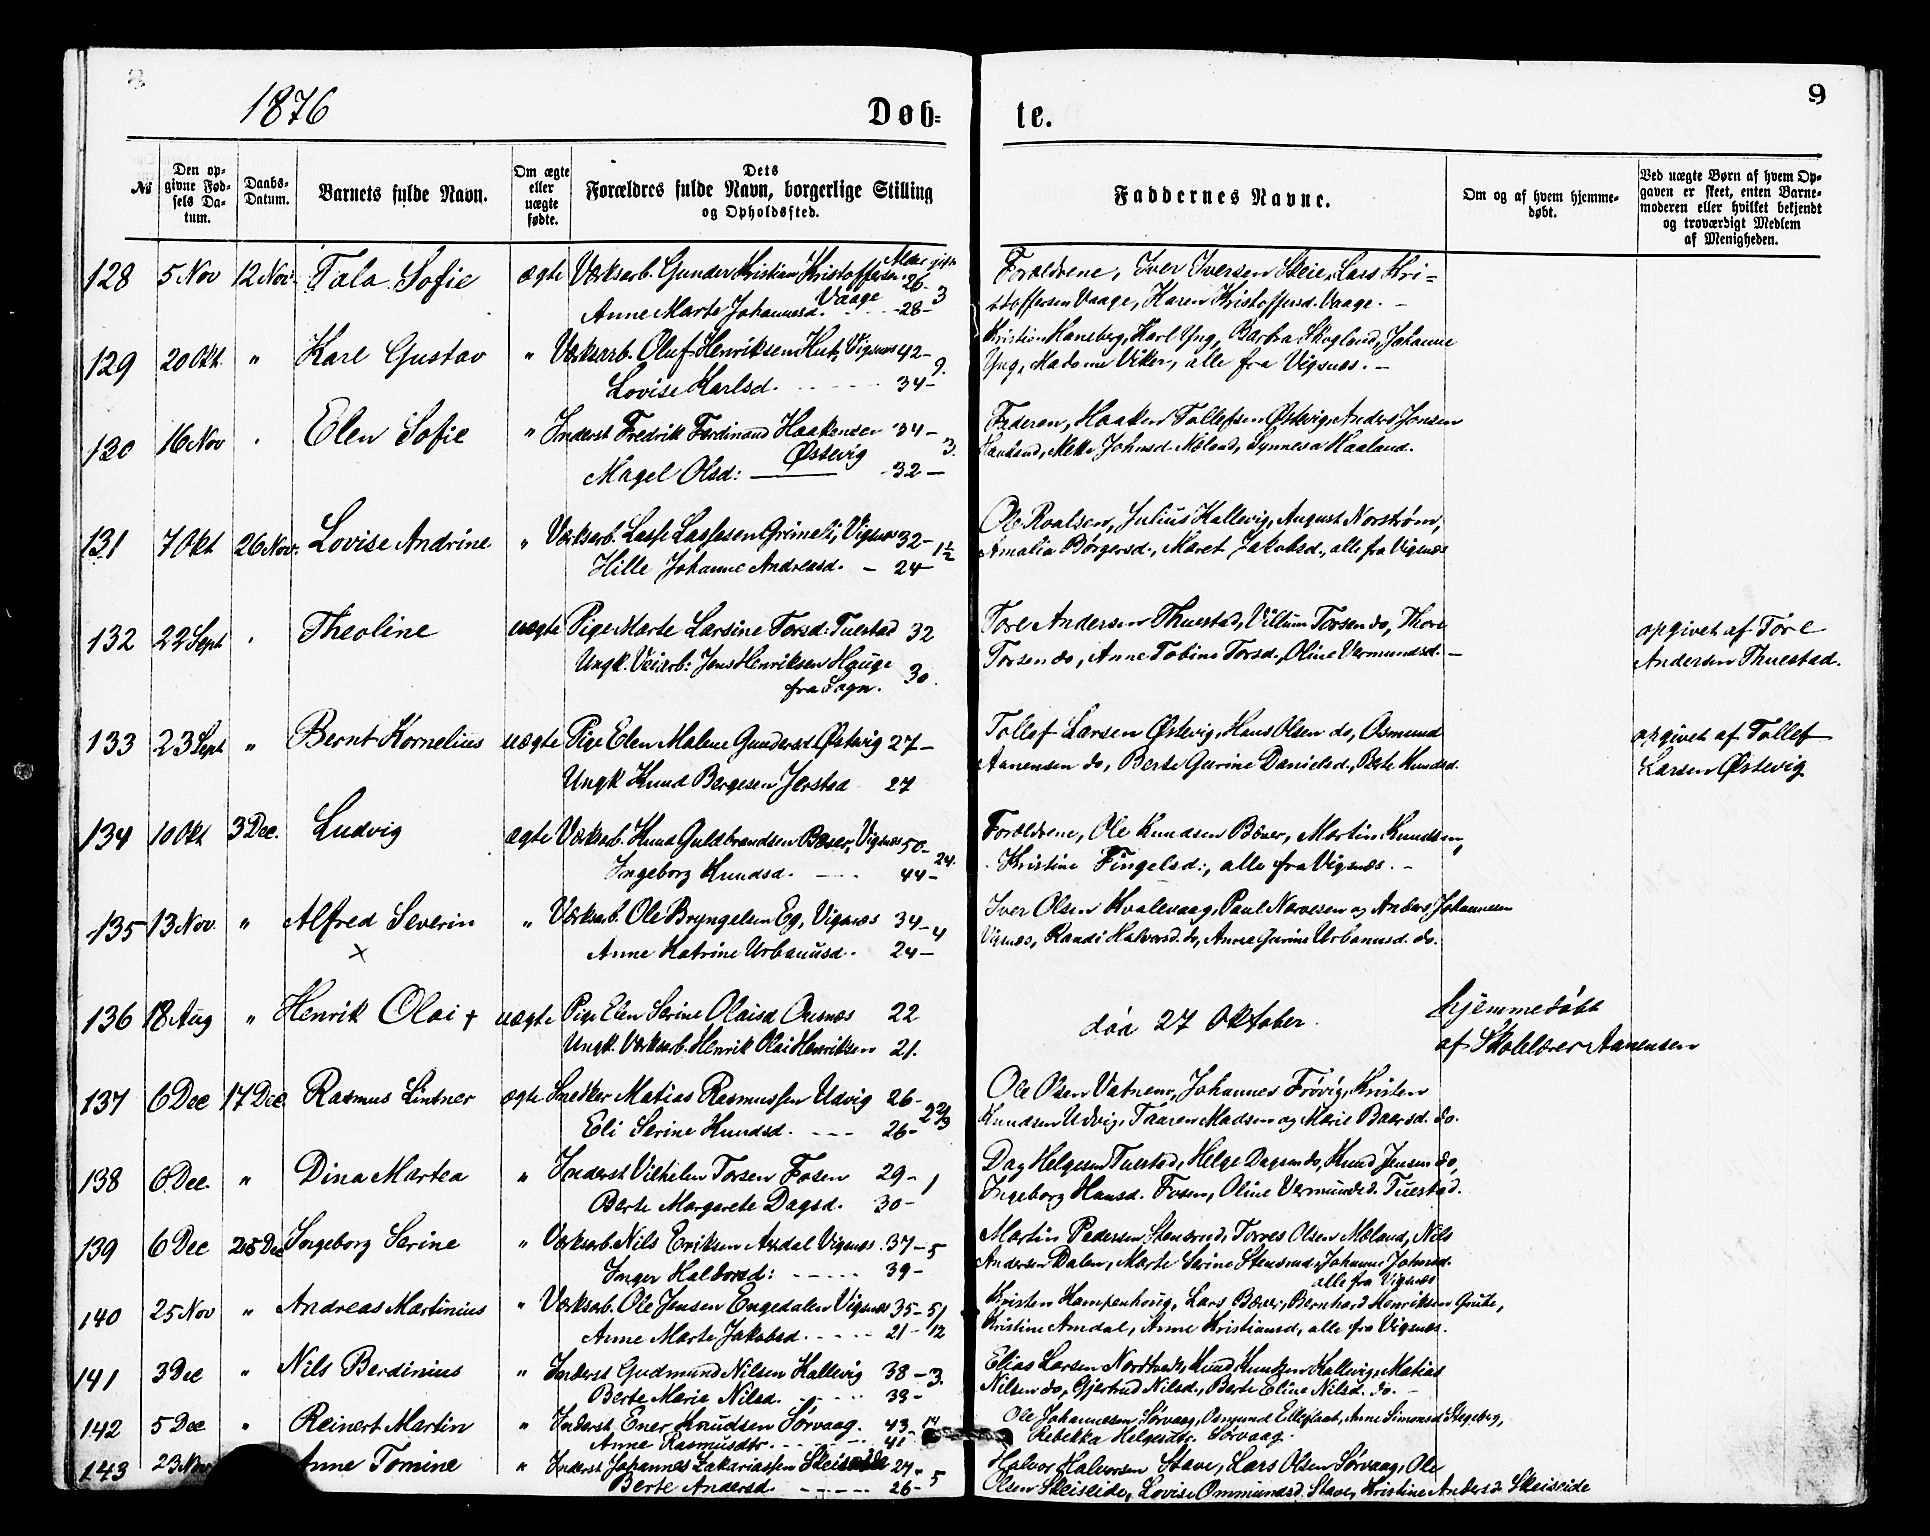 8.
1876
Døb-
te.
9
№
Den op-
givne Fød-
sels Da-
tum.
Daabs-
Datum.
Barnets fulde Navn.
Om ægte
eller
uægte
fødte.
Dets
Forældres fulde Navn, borgerlige Stilling
og Opholdssted.
Faddernes Navne.
Om og af hvem hjemme-
døbt.
Ved uægte Børn af hvem Op-
gaven er skeet, enten Barne-
moderen eller hvilket bekjendt
og troværdigt Medlem
af Menigheden.
Alder gift
128 5 Nov 12 Nov. Tala Sofie ægte Værksarb. Gunder Kristian Kristoffersen 26- Forældrene, Iver Iversen Skeie, Lars Kri-
Vaage 3
Anne Marte Johannesd. 28- stoffersen Vaage, Karen Kristoffersd. Vaage. -
129 20 Okt. " Karl Gustav " Værksarb. Oluf Henriksen Hut, Vigsnæs 42- 9. Kristian Haneberg, Karl Yng, Barbra Skogland, Johanne
Lovise Karlsd. 34- Yng, Madame Viker, alle fra Vigsnæs. -
130 16 Nov " Elen Sofie " Inderst Fredrik Ferdinand Haakensen 34- 3. Faderen, Haaken Tollefsen Østevig, Anders Jonsen
Østevig
Magel Olsd: 32- Mette Johnsd. Møland, Synneva Haaland.
131 7 Okt 26 Nov. Lovise Andrine " Værksarb. Lasse Lassesen Grimeli, Vigsnæs 32- 1½ Ole Roalsen, Julius Kallevig, August Norstrøm,
Hille Johanne Andreasd. - 24- Amalia Børgersd., Maret Jakobsd., alle fra Vigsnæs
132 22 Sept " Theoline uægte Pige Marte Larsine Torsd. Tuestad 32 Tore Andersen Thuestad, Villum Torsen do, Thore opgivet af Tore
Ungk. Veiarb: Jens Henriksen Hauge 30. Torsen do, Anne Tobine Torsd., Oline Vermundsd. - Andersen Thuestad.
fra Sogn.
133 23 Sept " Bernt Kornelius uægte Pige Elen Malene Gundersd. Østevig 27- Tollef Larsen Østevig, Hans Olsen do, Osmund opgivet af Tollef
Ungk Knud Bergesen Jerstad 27 Aanensen do, Berte Gurine Danielsd., Berte Knudsd. Larsen Østevig
134 10 Okt 3 Dec. Ludvig ægte Værksarb. Knud Guldbrandsen Bæver, Vigsnæs 50- 24. Forældrene, Ole Knudsen Bæver, Martin Knudsen,
Ingeborg Knudsd. 44- Kristine Fingelsd:, alle fra Vigsnæs. -
135 13 Nov. " Alfred Severin " Værksarb. Ole Bryngelsen Eg, Vigsnæs 34- 4 Iver Olsen Kvallevaag, Paul Norvesen og Anders Johannesen
× Anne Katrine Urbanusd. 24- Vigsnæs, Randi Halvorsd. do, Anna Gurine Urbanusd. do.
136 18 Aug " Henrik Olai + uægte Pige Elen Serine Olaisd. 22 død 27 Oktober. hjemmedøbt
Ungk. Værksarb. Henrik Olai Henriksen 21. af Skolelærer Aanensen
137 6 Dec 17 Dec. Rasmus Lintner ægte Snedker Matias Rasmussen Udvig 26- 2⅔ Ole Olsen Vatnem, Johannes Frøvig, Kristen
Eli Serine Knudsd. 26- Knudsen Udvig, Taaren Madsen og Marie Baarsd. do.
138 6 Dec. " Dina Martea " Inderst Vilhelm Torsen Fosen 29- 1 Dag Helgesen Tuestad, Helge Dagsen do, Knud Jensen do,
Berte Margrete Dagsd. 30- Ingeborg Hansd. Fosen, Oline Vermundsd. Tuestad.
139 6 Dec 25 Dec Ingeborg Serine " Værksarb. Nils Eriksen Aardal Vigsnæs. 37- 5 Martin Pedersen Stensrud, Torres Olsen Møland, Nils
Inger Haldorsd: 39- Andersen Dalen, Marte Serine Stensrud, Johanne Johnsd.
alle fra Vigsnæs
140 25 Nov " Andreas Martinius " Værksarb. Ole Jensen Engedalen Vigsnæs 35- 5/12 Kristen Kampenhoug, Lars Bæver, Bernhard Henriksen Grube,
Anne Marte Jakobsd. 21- Kristine Amdal, Anne Kristiansd., alle fra Vigsnæs.
141 3 Dec " Nils Berdinius " Inderst Gudmund Nilsen Kallevig 38- 3. Elias Larsen Nordtveit, Knud Knudsen Kallevig, Matias
Berte Marie Nilsd. 39- Nilsen do, Gjertrud Nilsd., Berte Eline Nilsd. do. -
142 5 Dec " Reinert Martin " Inderst Ener Knudsen Sørvaag. 43- 14 Ole Johannesen Sørvaag, Osmund Elleflaat, Anne Simonsd. Stegeberg,
Anne Rasmusdtr. 41- Rebekka Helgesdtr. Sørvaag.
143 23 Nov Anne Tomine " Inderst Johannes Zakariassen Skeiseide 27- 5 Halvor Halvorsen Stave, Lars Olsen Sørvaag, Ole
Berte Andersd. 26- Olsen Skeiseide, Lovise Ommundsd. Stave, Kristine Andersd. Skeiseide